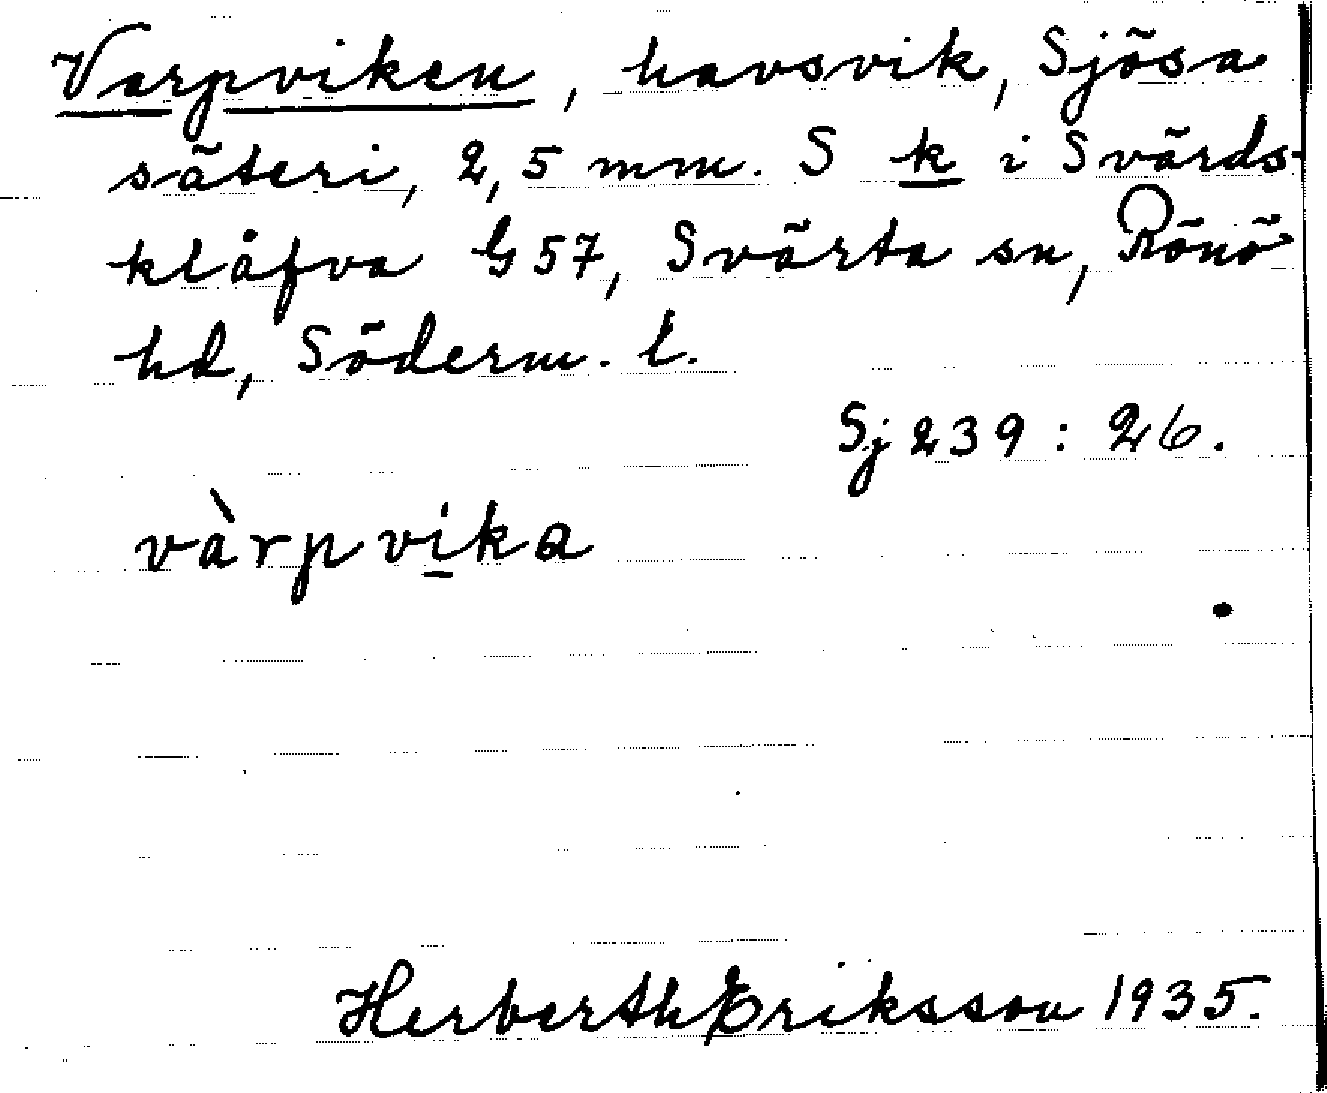 Varpviken, havsvik, Sjösa
säteri, 2,5 mm. S k i Svärds-
klåfva G57, Svärta sn, Rönö
hd, Söderm. l.
Sj 239 : 26.
vàrpvika
Herberth Eriksson 1935.